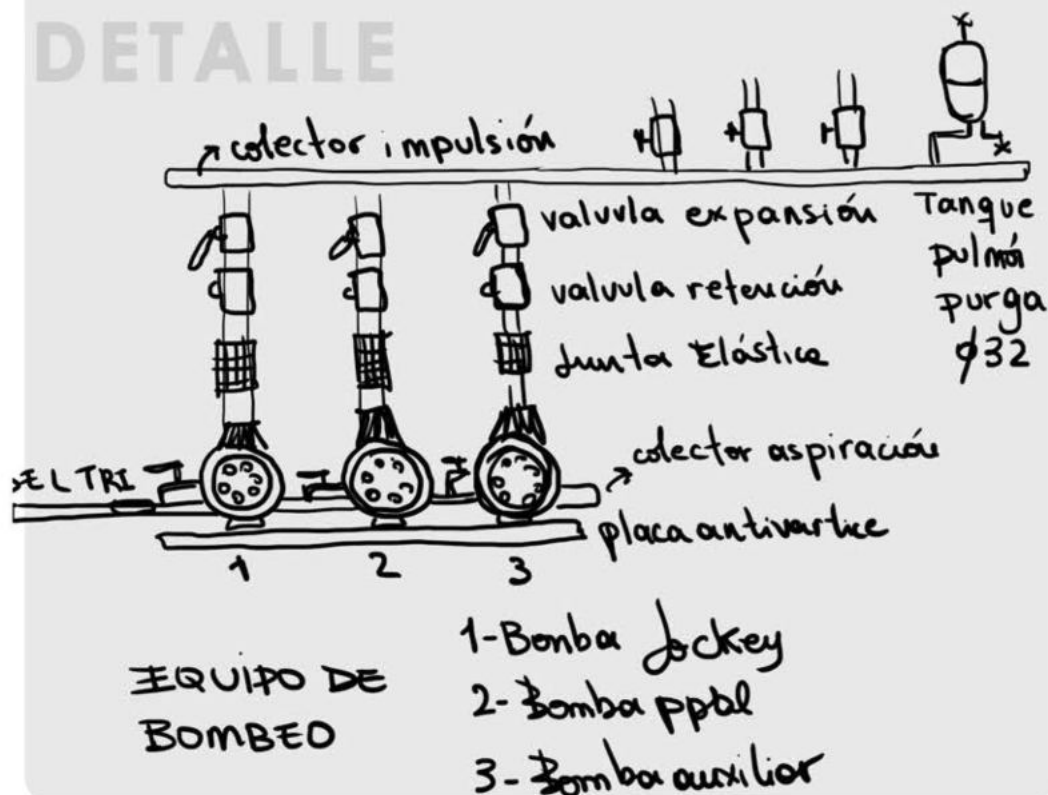 DETALLE
colector impulsión
valvula expansión
valvula retención
Junta Elástica
Tanque
pulmói
purga
φ32
DEL TRI
colector aspiración
placa antivartice
1 2 3
EQUIPO DE
BOMBEO
1-Bonba Jockey
2-Bomba ppal
3-Bomba auxiliar